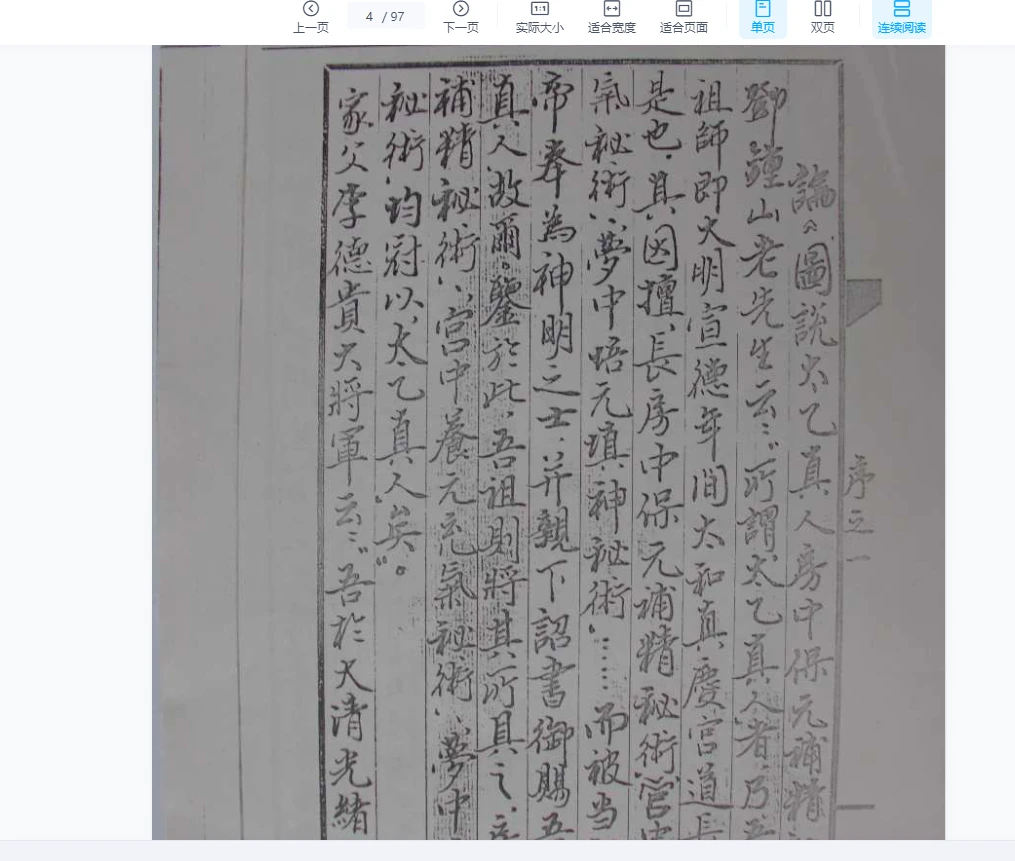 上一页
4 / 97
下一页
1:1
实际大小
适合宽度
适合页面
单页
双页
连续阅读
序之一
論《圖說太乙真人房中保元補精
鄧鐘山老先生云：“所謂太乙真人者，乃吾
祖師即大明宣德年間太和真慶宮道長
是也，其因擅長房中保元補精秘術、宮中
氣秘術、夢中悟元填神秘術，……而被当
帝奉為神明之士，并親下詔書御賜
真人故爾。鑒於此，吾祖則將其所具之，
補精秘術、宮中養元充氣秘術、夢中
秘術，均冠以‘太乙真人’矣”。
家父李德貴大將軍云：“吾於大清光緒